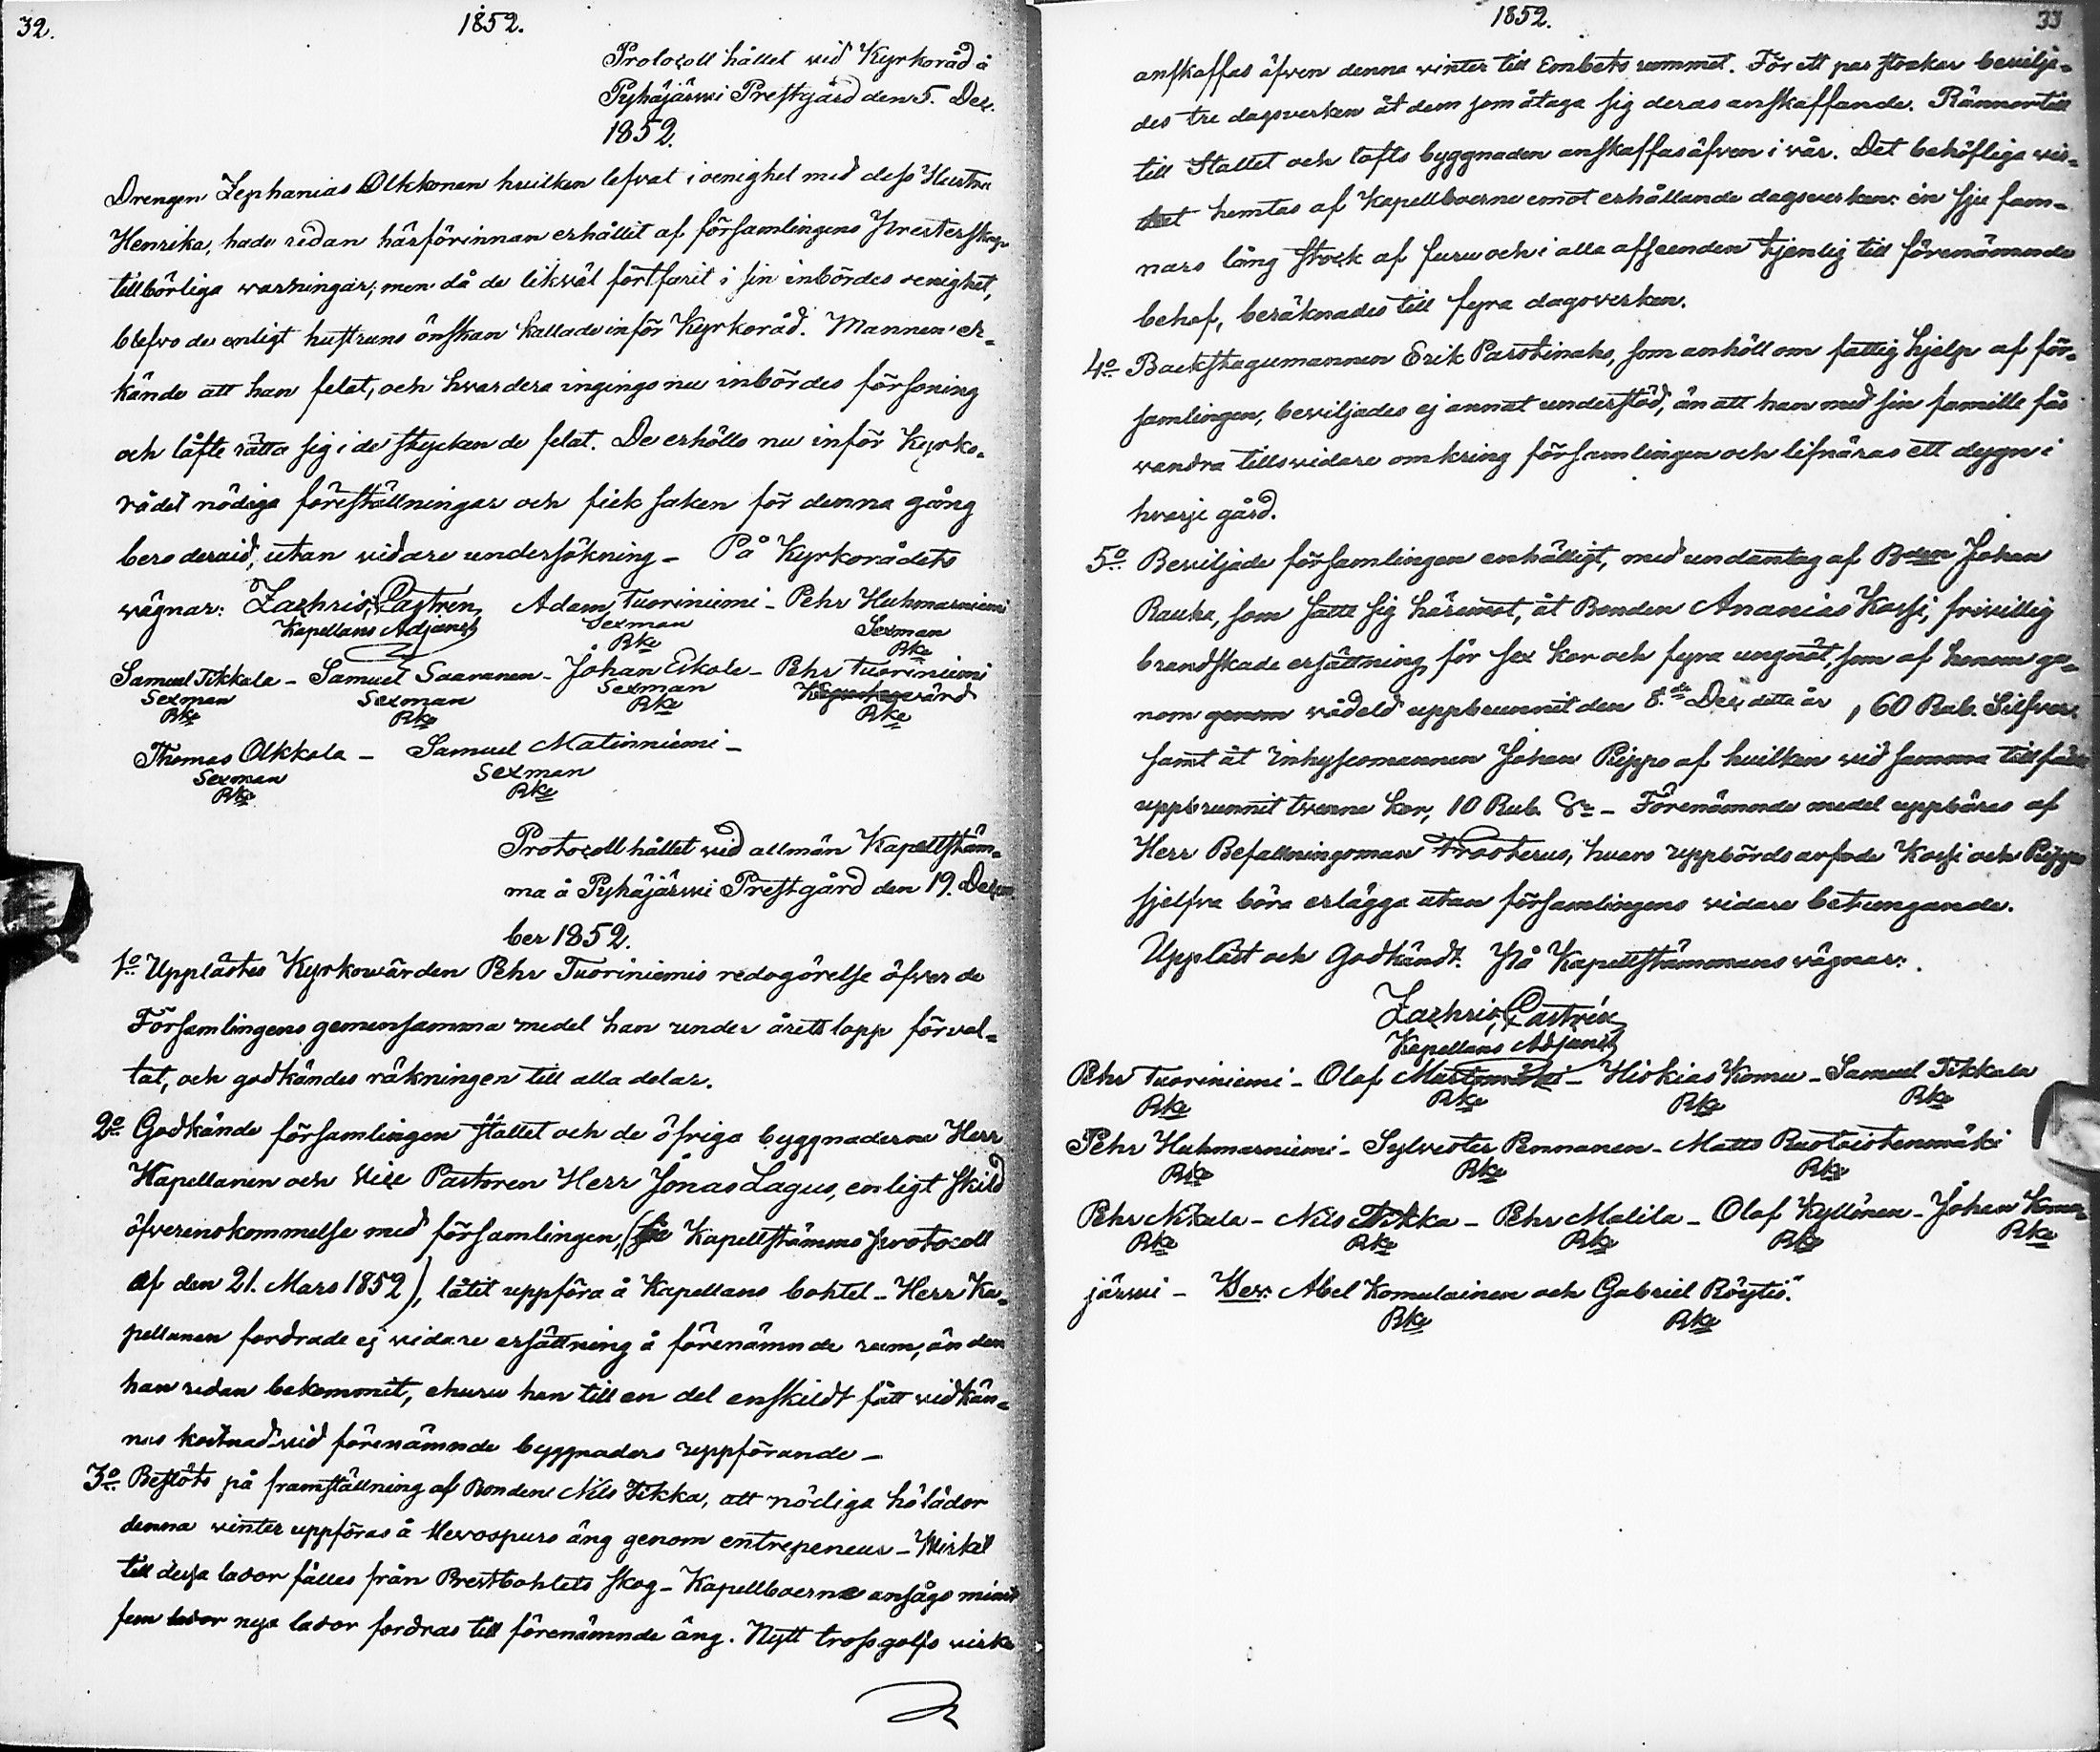 32.
1852.
Protocoll hållet vid Kyrkoråd å
Pyhäjärwi Prestgård den 5. Dec.
1852.
Drengen Zephanias Olkkonen hvilken lefvat i oenighet med dess Hustru
Henrika, hade redan härförinnan erhållit af församlingens Presterskap
tillbörliga varningar; men då de likväl fortfarit i sin inbördes oenighet,
blefvo de enligt hustruns önskan kallade inför Kyrkoråd. Mannen er-
kände att han felat, och hvardera ingingo nu inbördes försoning
och låfte rätta sig i de stycken de felat. De erhöllo nu inför Kyrko-
rådet nödiga föreställningar och fick saken för denna gång
bero deraid, utan vidare undersökning - På Kyrkorådets
vägnar: Zachris Castrén, Adam Tuoriniemi - Pehr Huhmarniemi
Kapellans Adjunct Sexman Sexman
Rke Rke
Samuel Tikkala - Samuel Saaranen - Johan Eskola - Pehr Tuoriniemi
Sexman Sexman Sexman värd
Rke Rke Rke Rke
Thomas Olkkola - Samuel Matinniemi -
Sexman Sexman
Rke Rke
Protocoll hållet vid allmän Kapellstäm-
ma å Pyhäjärwi Prestgård den 19. Decem
ber 1852.
1o Upplästes Kyrkowärden Pehr Tuoriniemis redogörelse öfver de
Församlingens gemensamma medel han under årets lopp förval-
tat, och godkändes räkningen till alla delar.
2o Godkände församlingen stallet och de öfriga byggnaderna Herr
Kapellanen och Vice Pastoren Herr Jonas Lagus, enligt skild
öfverenskommelse med församlingen, (se Kapellstämmo protocoll
af den 21. Mars 1852), låtit uppföra å Kapellans bohlet - Herr Ka-
pellanen fordrade ej vidare ersättning å förenämnde rum, än den
han redan bekommit, ehuru han till en del enskildt fått vidkän-
nas kostnad vid förenämnde byggnaders uppförande -
3o Beslöts på framställning af Bonden Nils Tikka, att nödiga hölador
denna winter uppföras å Hevospuro äng genom entrepeneur - Wirket
till dessa lador fälles från Prestbohlets skog - Kapellboerne ansågo minst
fem lador nya lador fordras till förenämnde äng. Nytt trossgolfs virke
1852.
33
anskaffas äfven denna winter till Embets rummet. För ett par stockar bevilja-
des tre dagsverken åt dem som åtaga sig deras anskaffande. Rännor till
till Stallet och lofts byggnaden anskaffas äfven i vår. Det behöfliga vir-
ket hemtas af Kapellboerne emot erhållande dagsverken: en sju fam-
nars lång stock af furu och i alla afseenden tjenlig till förenämnde
behof, beräknades till fyra dagsverken.
4o Backstugumannen Erik Parotinaho, som anhöll om fattighjelp af för-
samlingen, beviljades ej annat understöd, än att han med sin familie får
vandra tillsvidare omkring församlingen och lifnäras ett dygn i
hvarje gård.
5o Beviljade församlingen enhälligt, med undantag af Bden Johan
Rauha, som satte sig häremot, åt Bonden Ananias Kossi, frivillig
brandskade ersättning för sex kor och fyra ungnöt, som af honom ge-
nom genom vådeld uppbrunnit den 8.de Dec. detta år, 60 Rub. Silfver.
samt åt Inhysesmannen Johan Pippo af hvilken vid samma tillfälle
uppbrunnit tvenne kor, 10 Rub. Sr - Förenämnde medel uppbäres af
Herr Befallningsman Frosterus, hvars uppbördsarfvode Kossi och Pippo
sjelfva böra erlägga utan församlingens vidare betungande.
Uppläst och Godkändt. På Kapellstämmans vägnar:
Zachris Castrén
Kapellans Adjunct
Pehr Tuoriniemi - Olof Martomäki - Hiskias Komu - Samuel Tikkala
Rke Rke Rke Rke
Pehr Huhmarniemi - Sylvester Pennanen - Matts Ruotoistenmäki
Rke Rke Rke
Pehr Nikula - Nils Tikka - Pehr Malila - Olof Kyllönen - Johan Komu
Rke Rke Rke Rke Rke
järwi - Abel Komulainen och Gabriel Röytiö.
Rke Rke